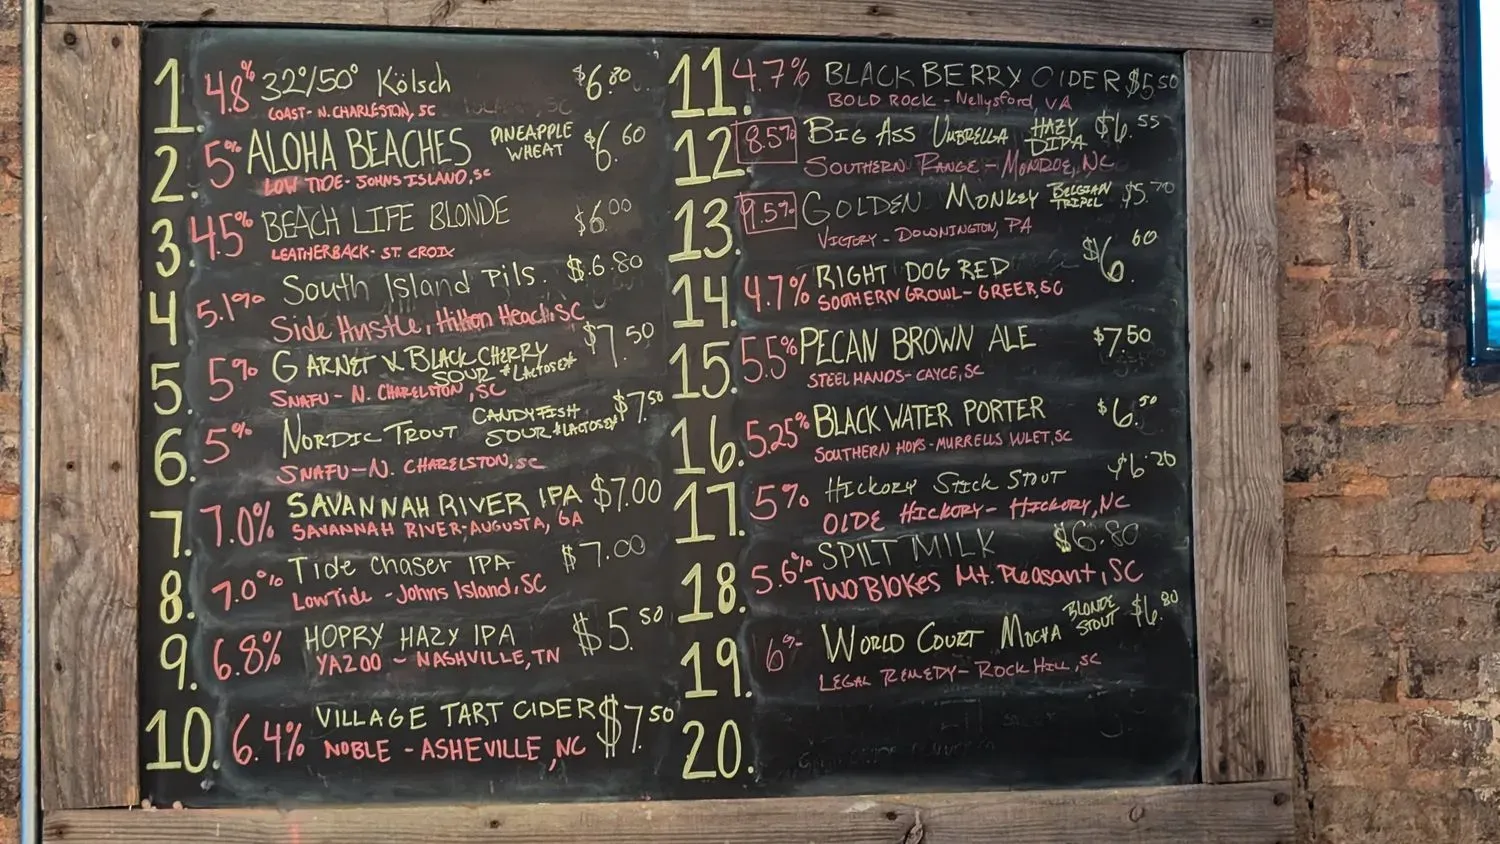 1. 4.8% 32°/50° Kölsch $6.80
COAST- N. CHARLESTON, SC
2. 5% ALOHA BEACHES PINEAPPLE WHEAT $6.60
LOW TIDE- JOHNS ISLAND, SC
3. 4.5% BEACH LIFE BLONDE $6.00
LEATHERBACK- ST. CROIX
4. 5.1% South Island Pils. $.6.80
Side Hustle, Hilton Heach, SC
5. 5% GARNET N BLACK CHERRY $7.50
SOUR *LACTOSE*
SNAFU - N. CHARELSTON, SC
6. 5% NORDIC TROUT CANDYFISH SOUR *LACTOSE* $7.50
SNAFU-N. CHARELSTON, SC
7. 7.0% SAVANNAH RIVER IPA $7.00
SAVANNAH RIVER-AUGUSTA, GA
8. 7.0% Tide Chaser IPA $7.00
Low Tide - Johns Island, SC
9. 6.8% HOPRY HAZY IPA $5.50
YAZOO - NASHVILLE, TN
10. 6.4% VILLAGE TART CIDER $7.50
NOBLE - ASHEVILLE, NC
11. 4.7% BLACKBERRY CIDER $5.50
BOLD ROCK - Nellysford, VA
12. 8.5% BIG ASS UMBRELLA HAZY DIPA $6.55
SOUTHERN RANGE - MONROE, NC
13. 9.5% GOLDEN MONKEY BELGIAN TRIPEL $5.70
VICTORY - DOWNINGTON, PA
14. 4.7% RIGHT DOG RED $6.60
SOUTHERN GROWL- GREER, SC
15. 5.5% PECAN BROWN ALE $7.50
STEEL HANDS- CAYCE, SC
16. 5.25% BLACK WATER PORTER $6.50
SOUTHERN HOPS-MURRELLS INLET, SC
17. 5% HICKORY STICK STOUT $6.20
OLDE HICKORY- HICKORY, NC
18. 5.6% SPILT MILK $6.80
TWO BLOKES Mt. Pleasant, SC
19. 6% WORLD COURT MOCHA BLONDE STOUT $6.80
LEGAL REMEDY- ROCK HILL, SC
20.